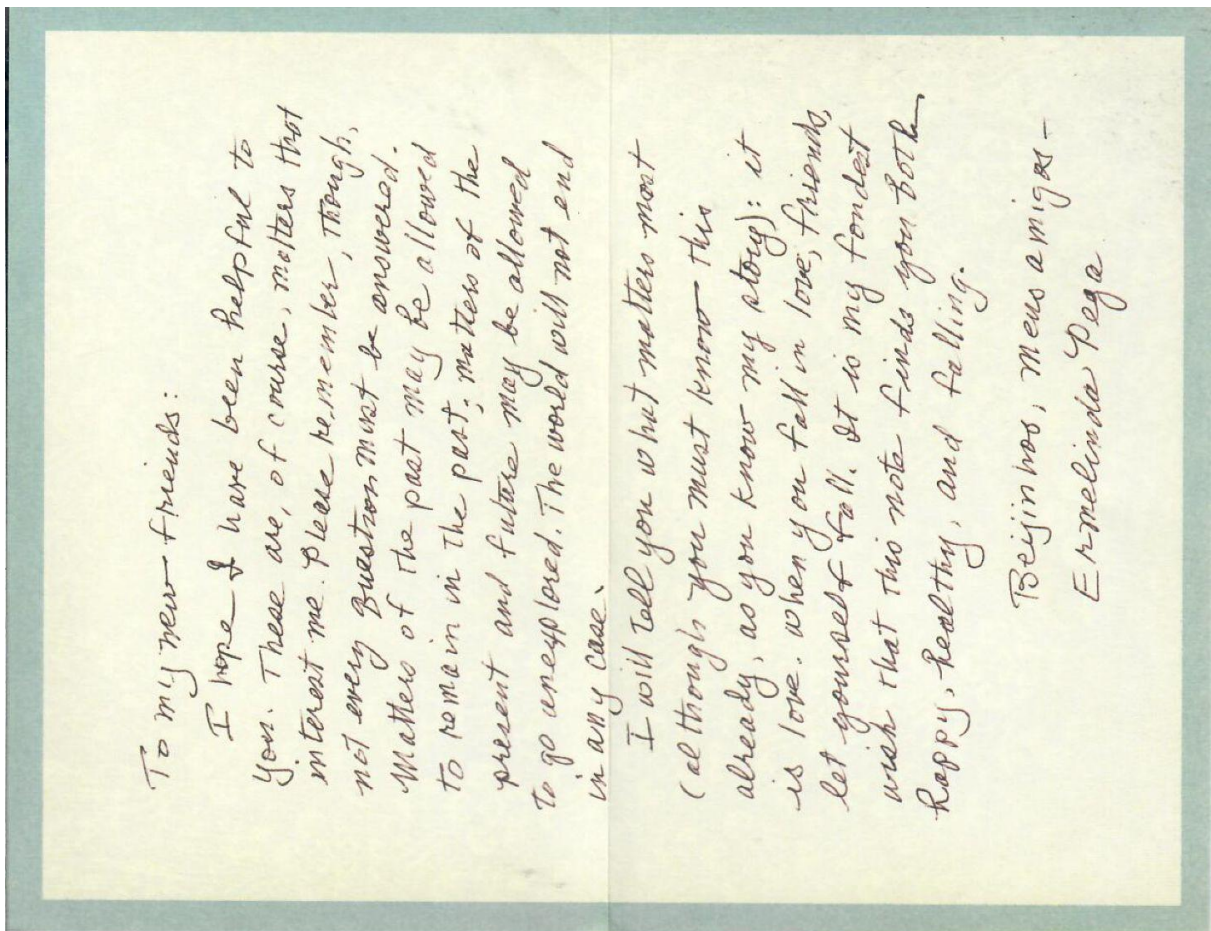 To my new friends:
I hope I have been helpful to
you. These are, of course, matters that
interest me. Please remember, though,
not every Question must be answered.
Matters of the past may be allowed
to remain in the past; matters of the
present and future may be allowed
to go unexplored. The world will not end
in any case.
I will tell you what matters most
(although you must know this
already, as you know my story): it
is love. When you fall in love, friends,
let yourself fall. It is my fondest
wish that this note finds you both
happy, healthy, and falling.
Beijinhos, meus amigos -
Ermelinda Pega